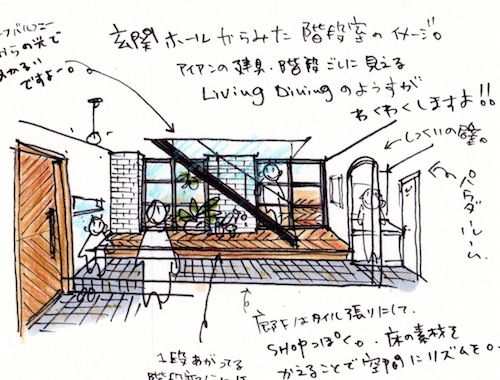 玄関ホールからみた階段室のイメージ。
アイアンの建具・階段ごしに見える
Living Diningのようすが
わくわくしますよ!!
からの光で
あかるい
ですよー。
しっくいの壁。
パウダールーム
廊下はタイル張りにして、
SHOPっぽく。床の素材を
かえることで空間にリズムを。
1段あがってる